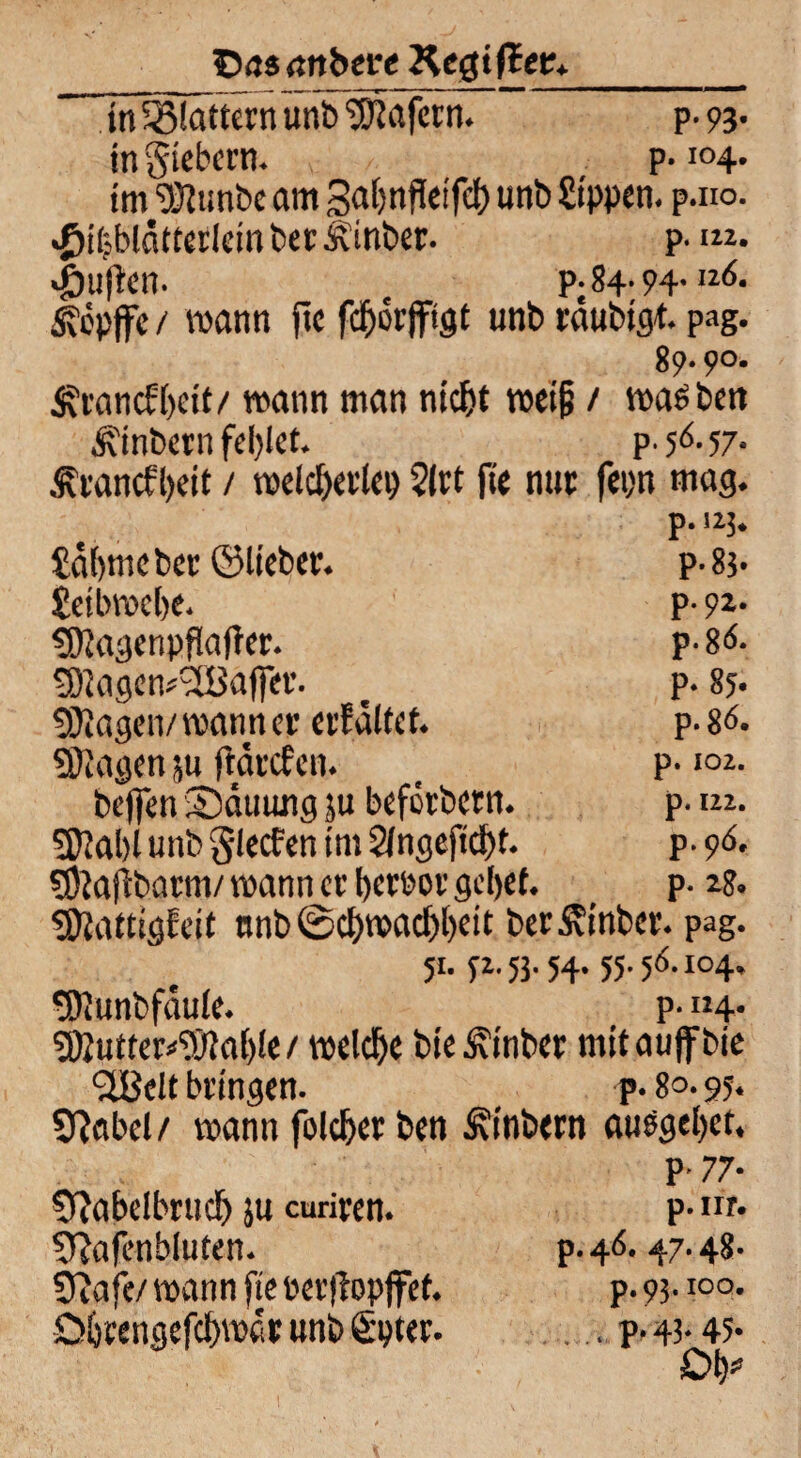 Das andere Register.
in Blattern und Masern. p. 93.
in Fiebern. p. 104.
im Munde am Zahnfleisch und Lippen. p. 110.
Hitzblätterlein der Kinder. p. 122.
Husten. p. 84. 94. 126.
Köpffe / wann sie schörffigt und räudigt. pag.
89. 90.
Kranckheit / wann man nicht weiß / was den
Kindern fehlet. p. 56. 57.
Kranckheit / welcherley Art sie nur seyn mag.
p. 123.
Lähme der Glieder. p. 83.
Leibwehe. p. 92.
Magenpflaster. p. 86.
Magen-Wasser. p. 85.
Magen / wann er erkältet. p. 86.
Magen zu stärcken. p. 102.
dessen Däuung zu befördern. p. 122.
Mahl und Flecken im Angesicht. p. 96.
Mastdarm / wann er hervor gehet. p. 28.
Mattigkeit und Schwachheit der Kinder. pag.
51. 52. 53. 54. 55. 56. 104.
Mundfäule. p. 124.
Mutter-Mahle / welche die Kinder mit auff die
Welt bringen. p. 80. 95.
Nabel / wann solcher den Kindern ausgehet.
p. 77.
Nabelbruch zu curiren. p. 111.
Nasenbluten. p. 46. 47. 48.
Nase / wann sie verstopffet. p. 93. 100.
Ohrengeschwär und Eyter. p. 43. 45.
Oh-